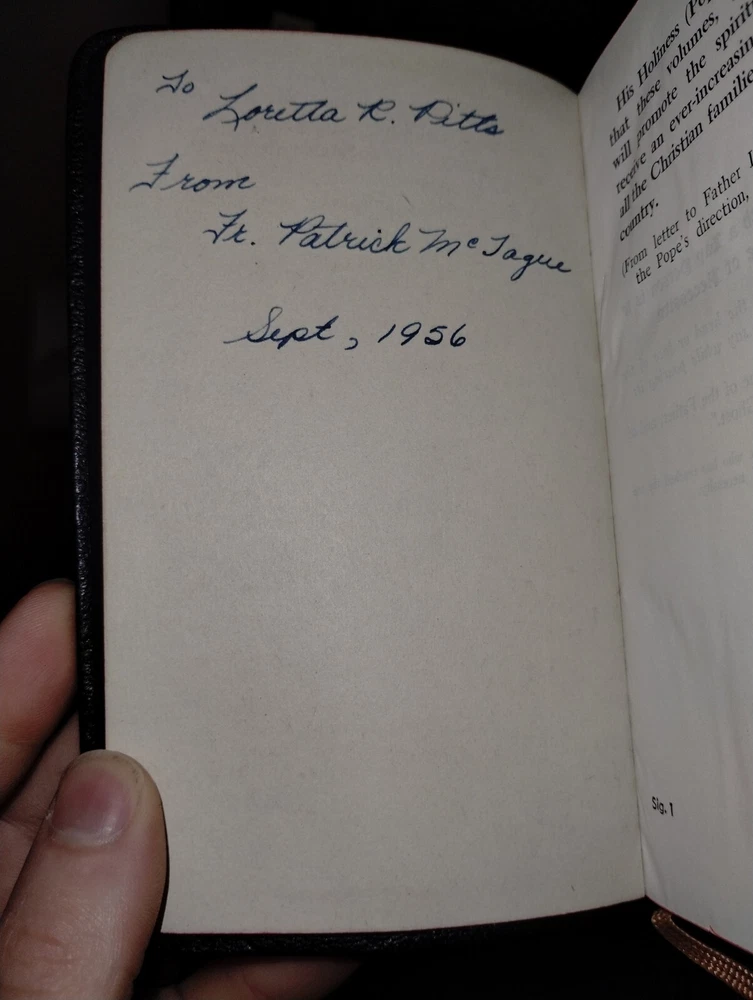 To
Loretta R. Pitts
From
Fr. Patrick McTague
Sept, 1956
His Holiness (Pop
that these volumes,
will promote the spirit
receive an ever-increasin
all the Christian familie
country.
(From letter to Father
the Pope's direction,
Sig. 1